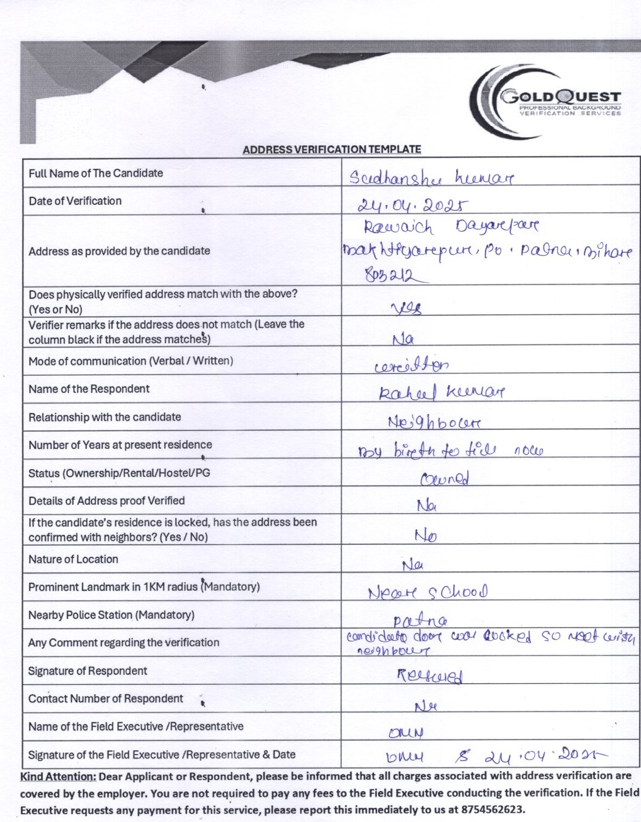 GOLDQUEST
PROFESSIONAL BACKGROUND
VERIFICATION SERVICES
ADDRESS VERIFICATION TEMPLATE
Full Name of The Candidate Sudhanshu kumar
Date of Verification 24.04.2025
Address as provided by the candidate Rawaich Dayarepar
Bakhtiyarepur, Po. Patna, Bihare
803212
Does physically verified address match with the above?
(Yes or No) yes
Verifier remarks if the address does not match (Leave the
column black if the address matches) Na
Mode of communication (Verbal / Written) written
Name of the Respondent Rahul kumar
Relationship with the candidate Neighboure
Number of Years at present residence By bireth to till now
Status (Ownership/Rental/Hostel/PG owned
Details of Address proof Verified Na
If the candidate's residence is locked, has the address been
confirmed with neighbors? (Yes / No) No
Nature of Location Na
Prominent Landmark in 1KM radius (Mandatory) Neare school
Nearby Police Station (Mandatory) patna
Any Comment regarding the verification candidate door was locked so meet with
neighboure
Signature of Respondent Refused
Contact Number of Respondent Na
Name of the Field Executive /Representative
Signature of the Field Executive /Representative & Date 24.04.2025
Kind Attention: Dear Applicant or Respondent, please be informed that all charges associated with address verification are
covered by the employer. You are not required to pay any fees to the Field Executive conducting the verification. If the Field
Executive requests any payment for this service, please report this immediately to us at 8754562623.